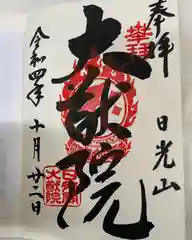 奉拝
日光山
大猷院
令和四年
十月廿二日
日光山
大猷院